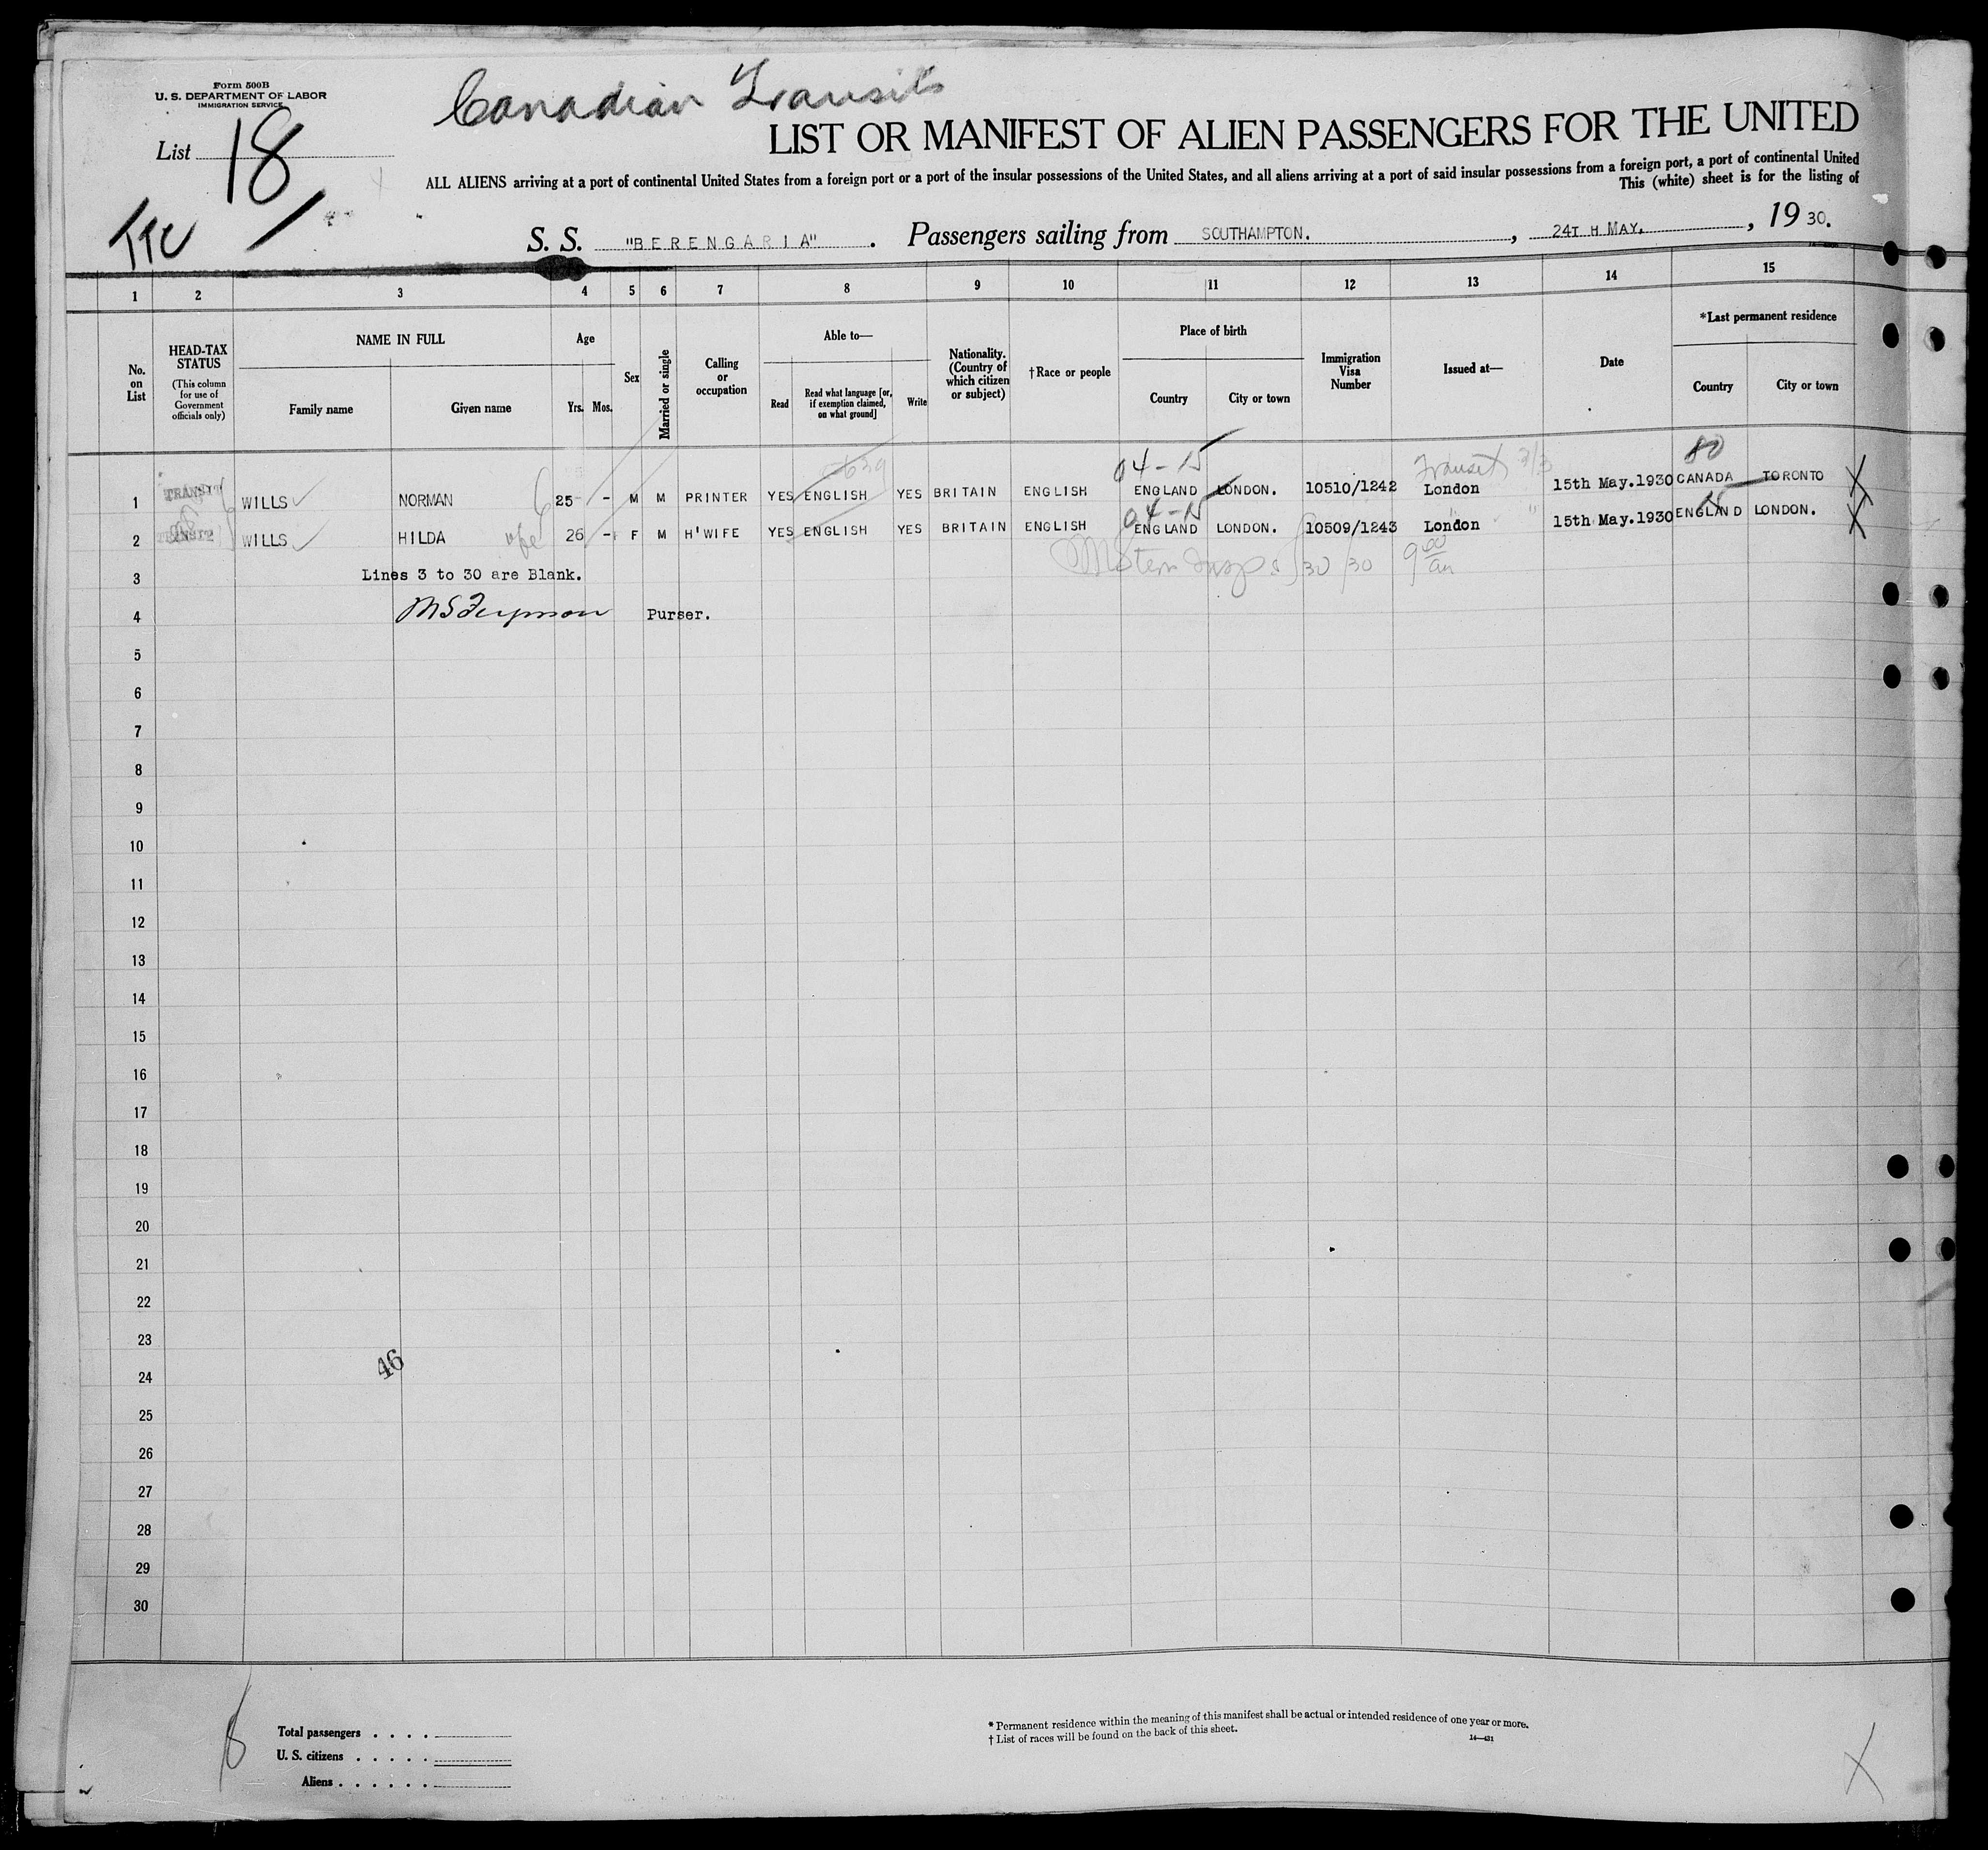 Form 500B
U. S. DEPARTMENT OF LABOR
IMMIGRATION SERVICE
Canadian Transits
List 18
LIST OR MANIFEST OF ALIEN PASSENGERS FOR THE UNITED
ALL ALIENS arriving at a port of continental United States from a foreign port or a port of the insular possessions of the United States, and all aliens arriving at a port of said insular possessions from a foreign port, a port of continental United
This (white) sheet is for the listing of
S. S. "BERENGARIA". Passengers sailing from SOUTHAMPTON. , 24TH MAY. , 1930.
1 2 3 4 5 6 7 8 9 10 11 12 13 14 15
No. on List
HEAD-TAX STATUS
(This column for use of Government officials only)
NAME IN FULL
Family name
Given name
Age
Yrs. Mos.
Sex
Married or single
Calling or occupation
Able to—
Read
Read what language [or, if exemption claimed, on what ground]
Write
Nationality. (Country of which citizen or subject)
†Race or people
Place of birth
Country
City or town
Immigration Visa Number
Issued at—
Date
*Last permanent residence
Country
City or town
04-15 Transit 80
1 TRANSIT WILLS NORMAN 25 - M M PRINTER YES ENGLISH YES BRITAIN ENGLISH ENGLAND LONDON. 10510/1242 London 15th May.1930 CANADA TORONTO
04-15
2 TRANSIT WILLS HILDA wife 26 - F M H'WIFE YES ENGLISH YES BRITAIN ENGLISH ENGLAND LONDON. 10509/1243 London 15th May.1930 ENGLAND LONDON.
3 Lines 3 to 30 are Blank.
4 Purser.
5
6
7
8
9
10
11
12
13
14
15
16
17
18
19
20
21
22
23
46
24
25
26
27
28
29
30
Total passengers . . . .
U. S. citizens . . . . .
Aliens . . . . . .
* Permanent residence within the meaning of this manifest shall be actual or intended residence of one year or more.
† List of races will be found on the back of this sheet.
14—431